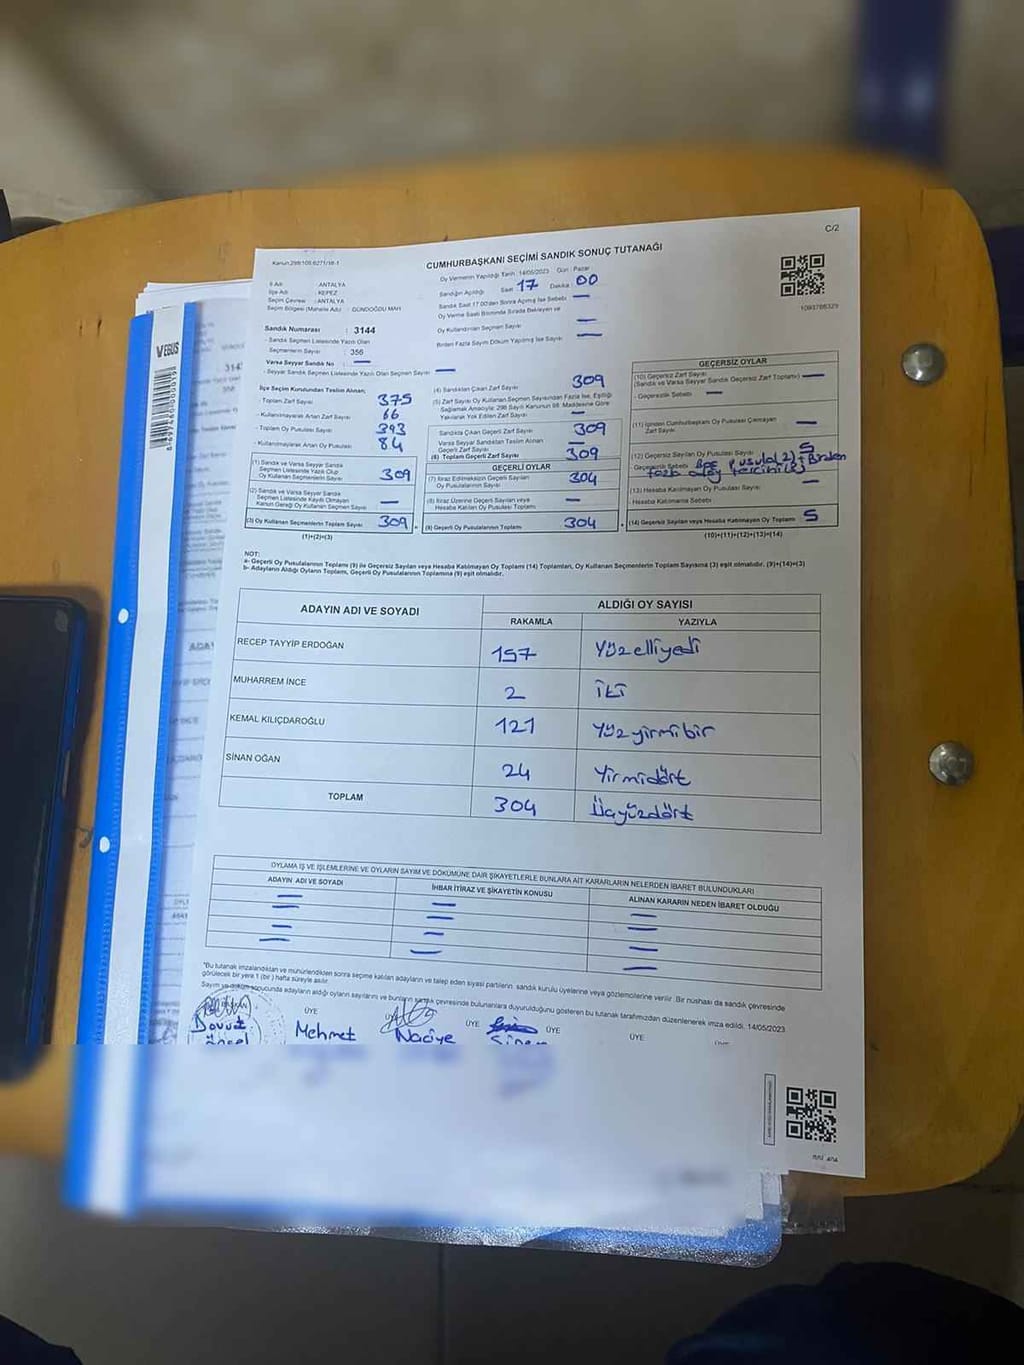 C/2
Kanun:298/105-6271/18-1
CUMHURBAŞKANI SEÇİMİ SANDIK SONUÇ TUTANAĞI
İl Adı : ANTALYA
İlçe Adı : KEPEZ
Seçim Çevresi : ANTALYA
Seçim Bölgesi (Mahalle Adı) : GÜNDOĞDU MAH
Sandık Numarası : 3144
- Sandık Seçmen Listesinde Yazılı Olan
Seçmenlerin Sayısı : 356
Varsa Seyyar Sandık No : —
- Seyyar Sandık Seçmen Listesinde Yazılı Olan Seçmen Sayısı : —
Oy Vermenin Yapıldığı Tarih : 14/05/2023 Gün : Pazar
Sandığın Açıldığı Saat 17 Dakika 00
Sandık Saat 17:00'den Sonra Açılmış İse Sebebi —
Oy Verme Saati Bitiminde Sırada Bekleyen ve
Oy Kullandırılan Seçmen Sayısı —
Birden Fazla Sayım Döküm Yapılmış İse Sayısı —
1093788329
İlçe Seçim Kurulundan Teslim Alınan;
- Toplam Zarf Sayısı 375
- Kullanılmayarak Artan Zarf Sayısı 66
- Toplam Oy Pusulası Sayısı 393
- Kullanılmayarak Artan Oy Pusulası 84
(1) Sandık ve Varsa Seyyar Sandık
Seçmen Listesinde Yazılı Olup
Oy Kullanan Seçmenlerin Sayısı 309
(2) Sandık ve Varsa Seyyar Sandık
Seçmen Listesinde Kayıtlı Olmayan
Kanun Gereği Oy Kullanan Seçmen Sayısı —
(3) Oy Kullanan Seçmenlerin Toplam Sayısı 309
(1)+(2)=(3)
(4) Sandıktan Çıkan Zarf Sayısı 309
(5) Zarf Sayısı Oy Kullanan Seçmen Sayısından Fazla İse, Eşitliği
Sağlamak Amacıyla; 298 Sayılı Kanunun 98. Maddesine Göre
Yakılarak Yok Edilen Zarf Sayısı —
Sandıkta Çıkan Geçerli Zarf Sayısı 309
Varsa Seyyar Sandıktan Teslim Alınan
Geçerli Zarf Sayısı —
(6) Toplam Geçerli Zarf Sayısı 309
GEÇERLİ OYLAR
(7) İtiraz Edilmeksizin Geçerli Sayılan
Oy Pusulalarının Sayısı 304
(8) İtiraz Üzerine Geçerli Sayılan veya
Hesaba Katılan Oy Pusulalarının Sayısı —
(9) Geçerli Oy Pusulalarının Toplamı 304
GEÇERSİZ OYLAR
(10) Geçersiz Zarf Sayısı
(Sandık ve Varsa Seyyar Sandık Geçersiz Zarf Toplamı) —
- Geçersizlik Sebebi : —
(11) İçinden Cumhurbaşkanı Oy Pusulası Çıkmayan
Zarf Sayısı —
(12) Geçersiz Sayılan Oy Pusulası Sayısı 5
Geçersizlik Sebebi Boş pusula(2) + Birden
fazla aday tercihi(3)
(13) Hesaba Katılmayan Oy Pusulası Sayısı —
- Hesaba Katılmama Sebebi
(14) Geçersiz Sayılan veya Hesaba Katılmayan Oy Toplamı 5
(10)+(11)+(12)+(13)=(14)
NOT:
a- Geçerli Oy Pusulalarının Toplamı (9) ile Geçersiz Sayılan veya Hesaba Katılmayan Oy Toplamı (14) Toplamları, Oy Kullanan Seçmenlerin Toplam Sayısına (3) eşit olmalıdır. (9)+(14)=(3)
b- Adayların Aldığı Oyların Toplamı, Geçerli Oy Pusulalarının Toplamına (9) eşit olmalıdır.
ADAYIN ADI VE SOYADI ALDIĞI OY SAYISI
RAKAMLA YAZIYLA
RECEP TAYYİP ERDOĞAN 157 Yüzelliyedi
MUHARREM İNCE 2 İki
KEMAL KILIÇDAROĞLU 121 Yüzyirmibir
SİNAN OĞAN 24 Yirmidört
TOPLAM 304 Üçyüzdört
OYLAMA İŞ VE İŞLEMLERİNE VE OYLARIN SAYIM VE DÖKÜMÜNE DAİR ŞİKAYETLERLE BUNLARA AİT KARARLARIN NELERDEN İBARET BULUNDUKLARI
ADAYIN ADI VE SOYADI İHBAR İTİRAZ VE ŞİKAYETİN KONUSU ALINAN KARARIN NEDEN İBARET OLDUĞU
— — —
— — —
— — —
— — —
*Bu tutanak imzalandıktan ve mühürlendikten sonra seçime katılan adayların ve talep eden siyasi partilerin sandık kurulu üyelerine veya gözlemcilerine verilir. Bir nüshası da sandık çevresinde
görülecek bir yere 1 (bir) hafta süreyle asılır.
Sayım ve döküm sonucunda adayların aldığı oyların sayılarını ve bunların sandık çevresinde bulunanlara duyurulduğunu gösteren bu tutanak tarafımızdan düzenlenerek imza edildi. 14/05/2023
BAŞKAN ÜYE ÜYE ÜYE ÜYE ÜYE
Davut Mehmet Naciye
VEGUS